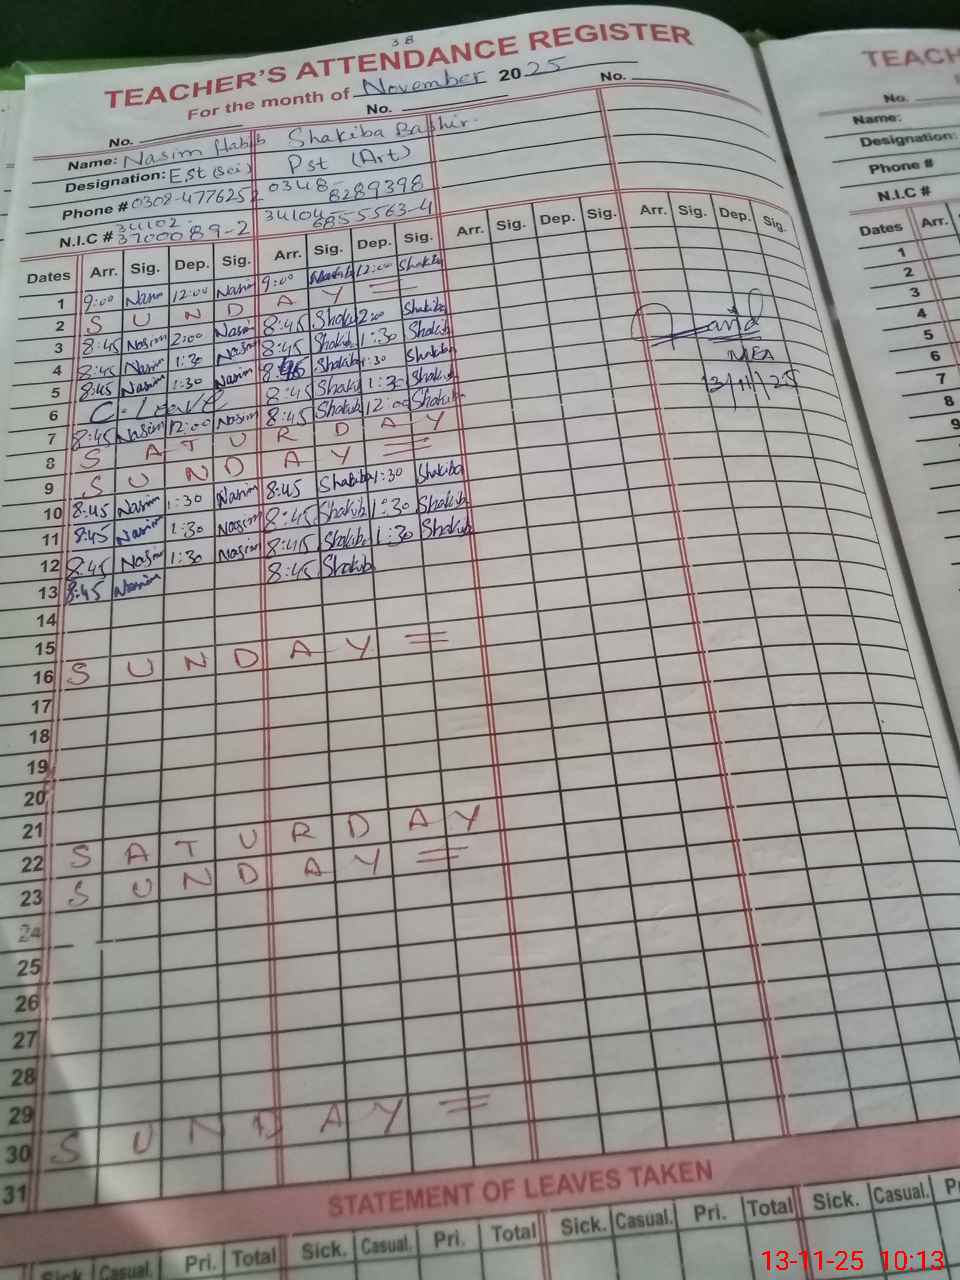 38
TEACHER'S ATTENDANCE REGISTER
For the month of November 2025
No. No. No.
Name: Nasim Habib Shakiba Bashir.
Designation: Est (Sci) Pst (Art)
Phone # 0308-4776252 0348-8289398
N.I.C # 34102 34104
3700089-2 6855563-4
Dates Arr. Sig. Dep. Sig. Arr. Sig. Dep. Sig. Arr. Sig. Dep. Sig. Arr. Sig. Dep. Sig.
1 9:00 Nasim 12:00 Nasim 9:00 12:00 Shakiba
2 S U N D A Y =
3 8:45 Nasim 2:00 Nasim 8:45 Shakiba 2:00 Shakiba
4 8:45 Nasim 1:30 Nasim 8:45 Shakiba 1:30 Shakiba
5 8:45 Nasim 1:30 Nasim 8:45 Shakiba 1:30 Shakiba
6 C-Leave 8:45 Shakiba 1:30 Shakiba
7 8:45 Nasim 12:00 Nasim 8:45 Shakiba 12:00 Shakiba
8 S A T U R D A Y
9 S U N D A Y =
10 8:45 Nasim 1:30 Nasim 8:45 Shakiba 1:30 Shakiba
11 8:45 Nasim 1:30 Nasim 8:45 Shakiba 1:30 Shakiba
12 8:45 Nasim 1:30 Nasim 8:45 Shakiba 1:30 Shakiba
13 8:45 Nasim 8:45 Shakiba
14
15
16 S U N D A Y =
17
18
19
20
21
22 S A T U R D A Y
23 S U N D A Y =
24
25
26
27
28
29
30 S U N D A Y =
31
MEA
13/11/25
STATEMENT OF LEAVES TAKEN
Sick. Casual. Pri. Total Sick. Casual. Pri. Total Sick. Casual. Pri. Total Sick. Casual.
TEACH
No.
Name:
Designation:
Phone #
N.I.C #
Dates Arr.
1
2
3
4
5
6
7
8
9
13-11-25 10:13